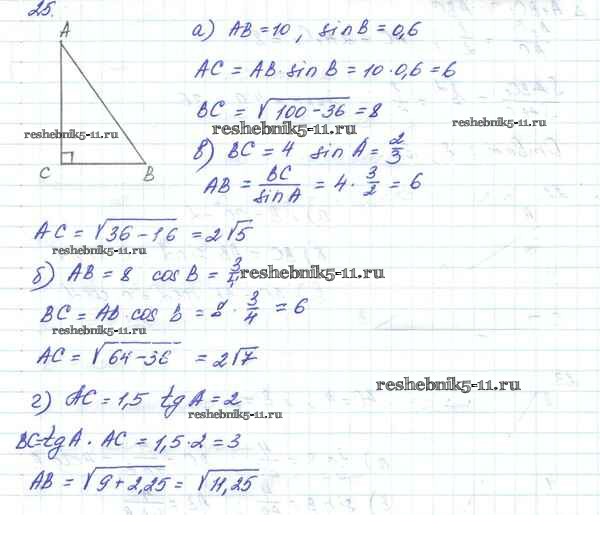 25.
A
C
B
а) AB = 10, sin B = 0,6
AC = AB · sin B = 10 · 0,6 = 6
BC = √(100 - 36) = 8
reshebnik5-11.ru
reshebnik5-11.ru
reshebnik5-11.ru
в) BC = 4 sin A = 2/3
AB = BC/sin A = 4 · 3/2 = 6
AC = √(36 - 16) = 2√5
reshebnik5-11.ru
б) AB = 8 cos B = 3/4
reshebnik5-11.ru
BC = AB · cos B = 8 · 3/4 = 6
reshebnik5-11.ru
AC = √(64 - 36) = 2√7
reshebnik5-11.ru
г) AC = 1,5 tg A = 2
reshebnik5-11.ru
BC = tg A · AC = 1,5 · 2 = 3
AB = √(9 + 2,25) = √11,25